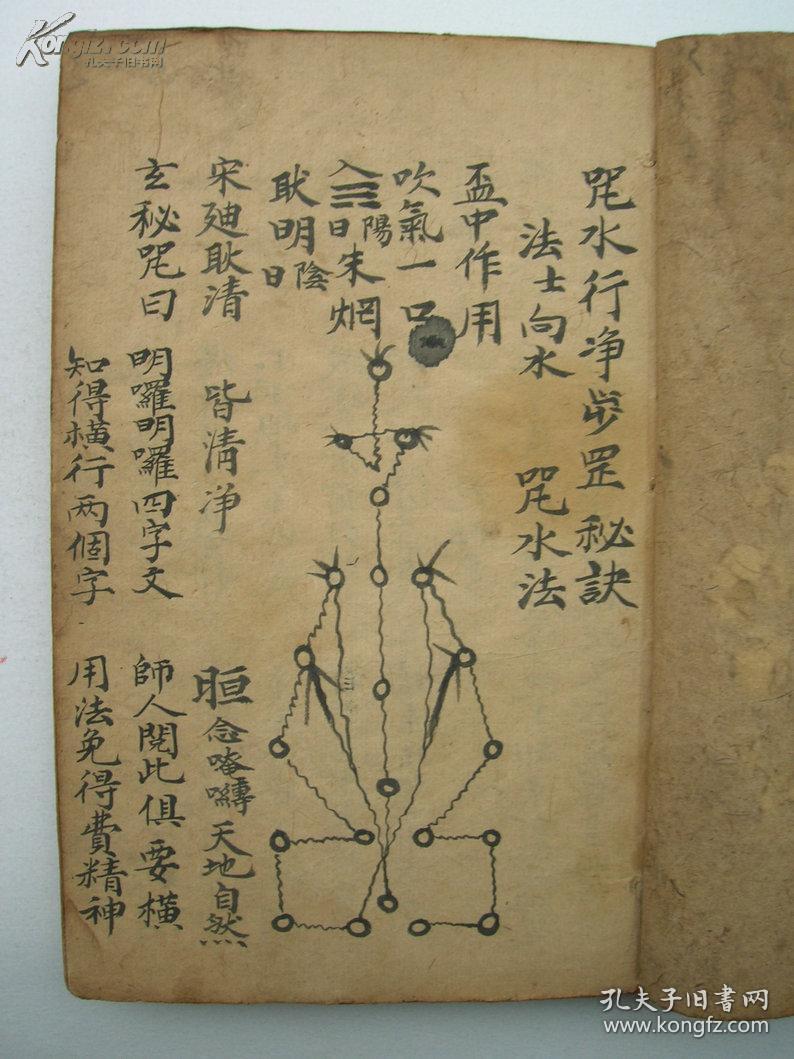 咒水行净步罡秘訣
法士向水 咒水法
盃中作用
吹氣一口
入三 陽日朱烱
耿明 陰日
宋廸耿清 皆清净 晅 念唵囀 天地自然
玄秘咒曰 明囉明囉四字文 師人閱此俱要横
知得横行两個字 用法免得費精神
Kongfz.com
孔夫子旧书网
孔夫子旧书网
www.kongfz.com